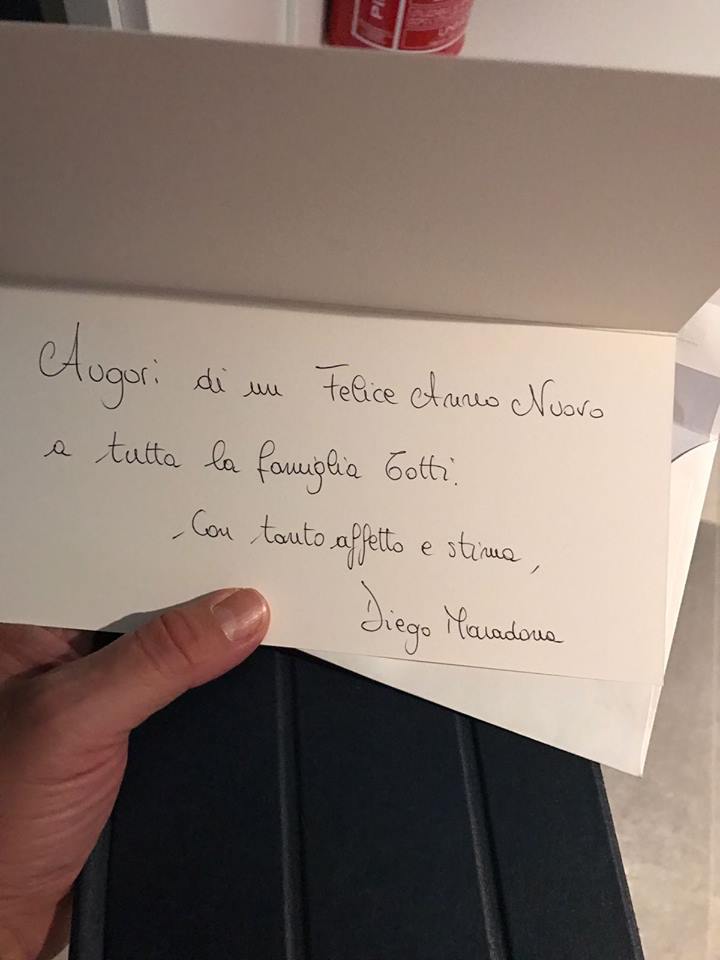 Auguri di un Felice Anno Nuovo
a tutta la famiglia Totti.
Con tanto affetto e stima,
Diego Maradona